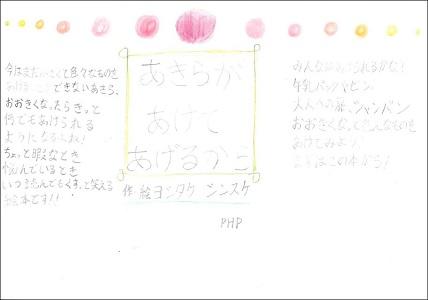 今はまだ小さくて色々なものを
あけることできないあきら、
おおきくなったらきっと
何でもあけられる
ようになるよね!
ちょっと暇なとき
やんでいるとき
いつ読んでもくすっと笑える
絵本です!!
あきらが
あけて
あげるから
作・絵ヨシタケ シンスケ
PHP
みんなはあけられるかな?
牛乳パックやビン、
大人への扉、シャンパン
おおきくなってどんなものを
あけてみよう
まずはこの本から!